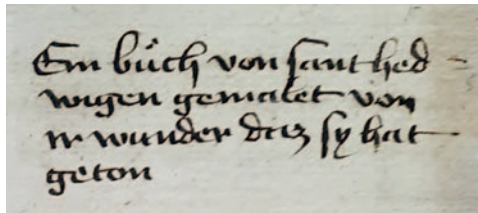 Ein bůch von sant hed-
wigen gemalet von
ir wunder daz sy hat
geton